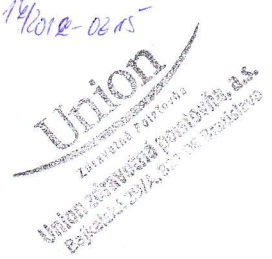 14/2012-OE15
Union
Zdravotná poisťovňa
Union zdravotná poisťovňa, a.s.
Bajkalská 29/A, 821 08 Bratislava